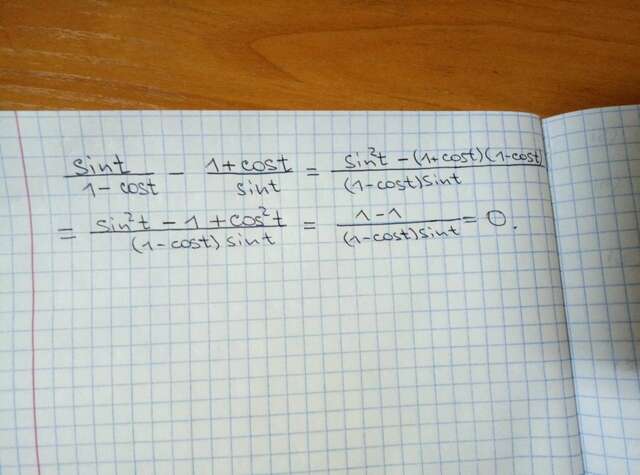 sint/(1-cost) - (1+cost)/sint = (sin²t-(1+cost)(1-cost))/((1-cost)sint)
= (sin²t-1+cos²t)/((1-cost)sint) = (1-1)/((1-cost)sint) = 0.